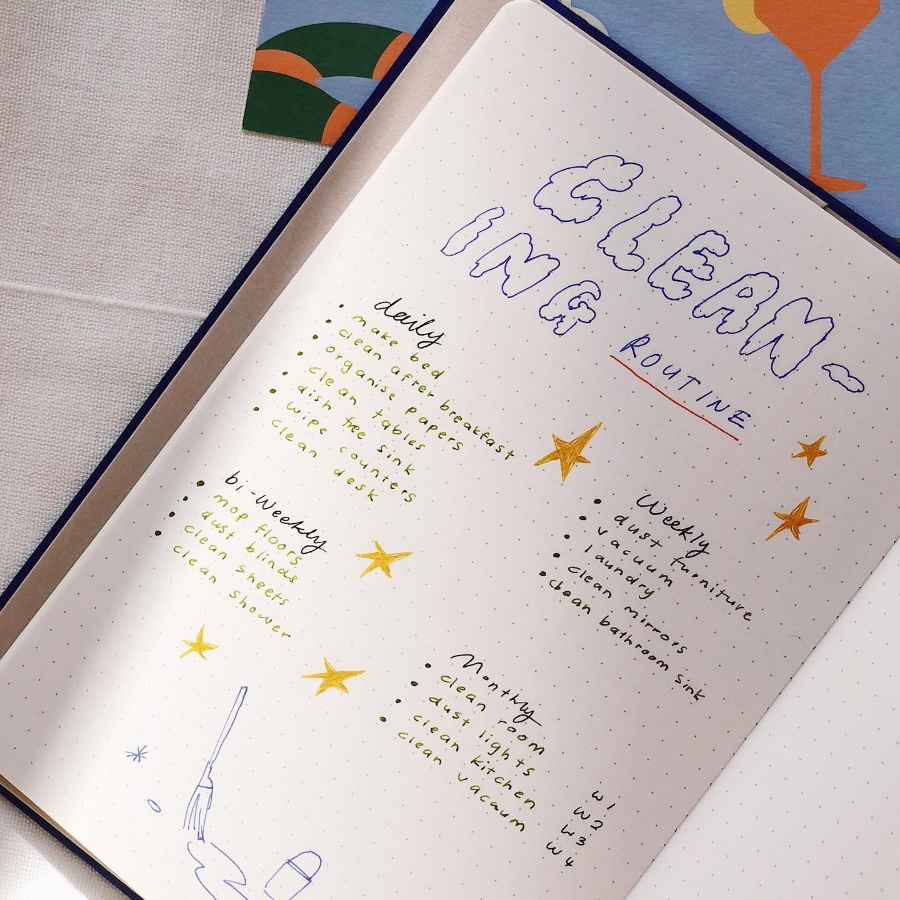 CLEAN-
ING
ROUTINE
daily
• make bed
• clean after breakfast
• organise papers
• clean tables
• dish free sink
• wipe counters
• clean desk
Weekly
• dust furniture
• vacuum
• laundry
• clean mirrors
• clean bathroom sink
bi-Weekly
• mop floors
• dust blinds
• clean sheets
• clean shower
Monthly
• clean room W1
• dust lights W2
• clean kitchen W3
• clean vacuum W4